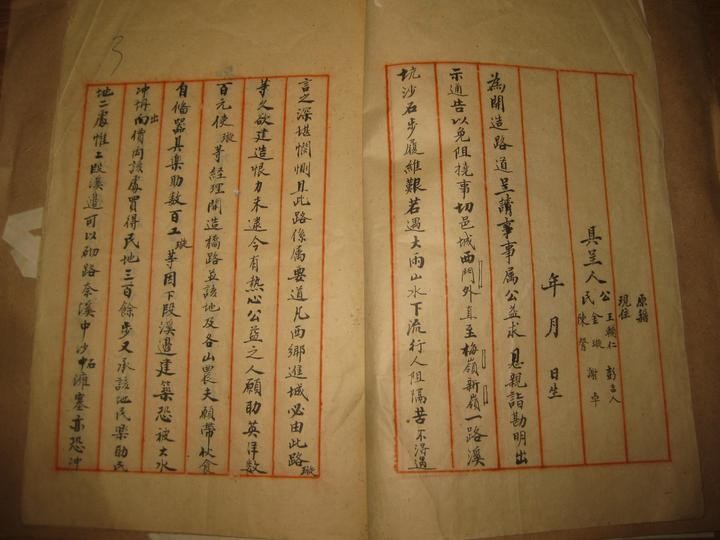 原籍
現住
具呈人 公民 王賴仁 彭吉人
金璇 謝卓
陳
年 月 日生
為開造路道呈請事事属公益求 恩親詣勘明出
示通告以免阻撓事切邑城西門外直至梅嶺新嶺一路溪
坑沙石步履維艱若遇大雨山水下流行人阻隔苦不得過
言之深堪憫惻且此路係属要道凡西鄉進城必由此路璇
等久欲建造恨力未逮今有熱心公益之人願助英洋數
百元使璇等經理開造橋路並該地及各山農夫願帶伙食
自備器具樂助數百工璇等因下段溪邊建築恐被大水
冲坍出價向該處買得民地三百餘步又承該地民樂助民
地二處惟上段溪邊可以砌路奈溪中沙石壅塞亦恐冲